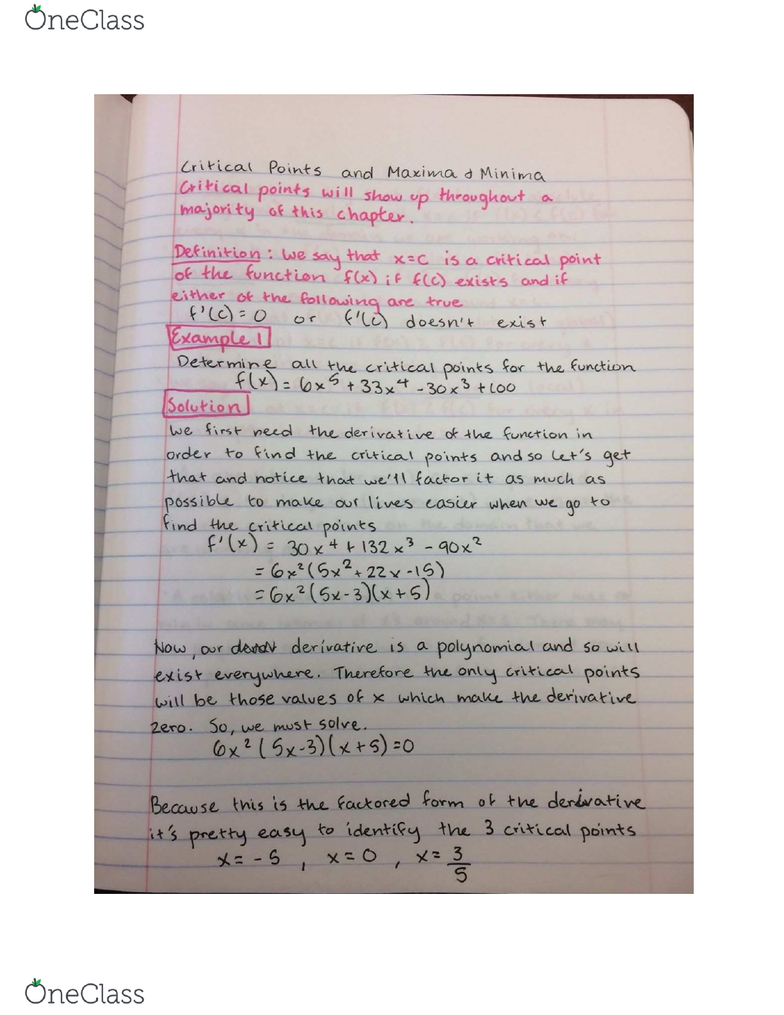 OneClass
Critical Points and Maxima & Minima
Critical points will show up throughout a
majority of this chapter.
Definition: We say that x=c is a critical point
of the function f(x) if f(c) exists and if
either of the following are true
f'(c)=0 or f'(c) doesn't exist
Example 1
Determine all the critical points for the function
f(x) = 6x⁵ + 33x⁴ - 30x³ + 100
Solution
We first need the derivative of the function in
order to find the critical points and so let's get
that and notice that we'll factor it as much as
possible to make our lives easier when we go to
find the critical points
f'(x) = 30x⁴ + 132x³ - 90x²
= 6x²(5x² + 22x - 15)
= 6x²(5x-3)(x+5)
Now, our derivative is a polynomial and so will
exist everywhere. Therefore the only critical points
will be those values of x which make the derivative
zero. So, we must solve.
6x²(5x-3)(x+5)=0
Because this is the factored form of the derivative
it's pretty easy to identify the 3 critical points
x = -5 , x = 0 , x = 3/5
OneClass